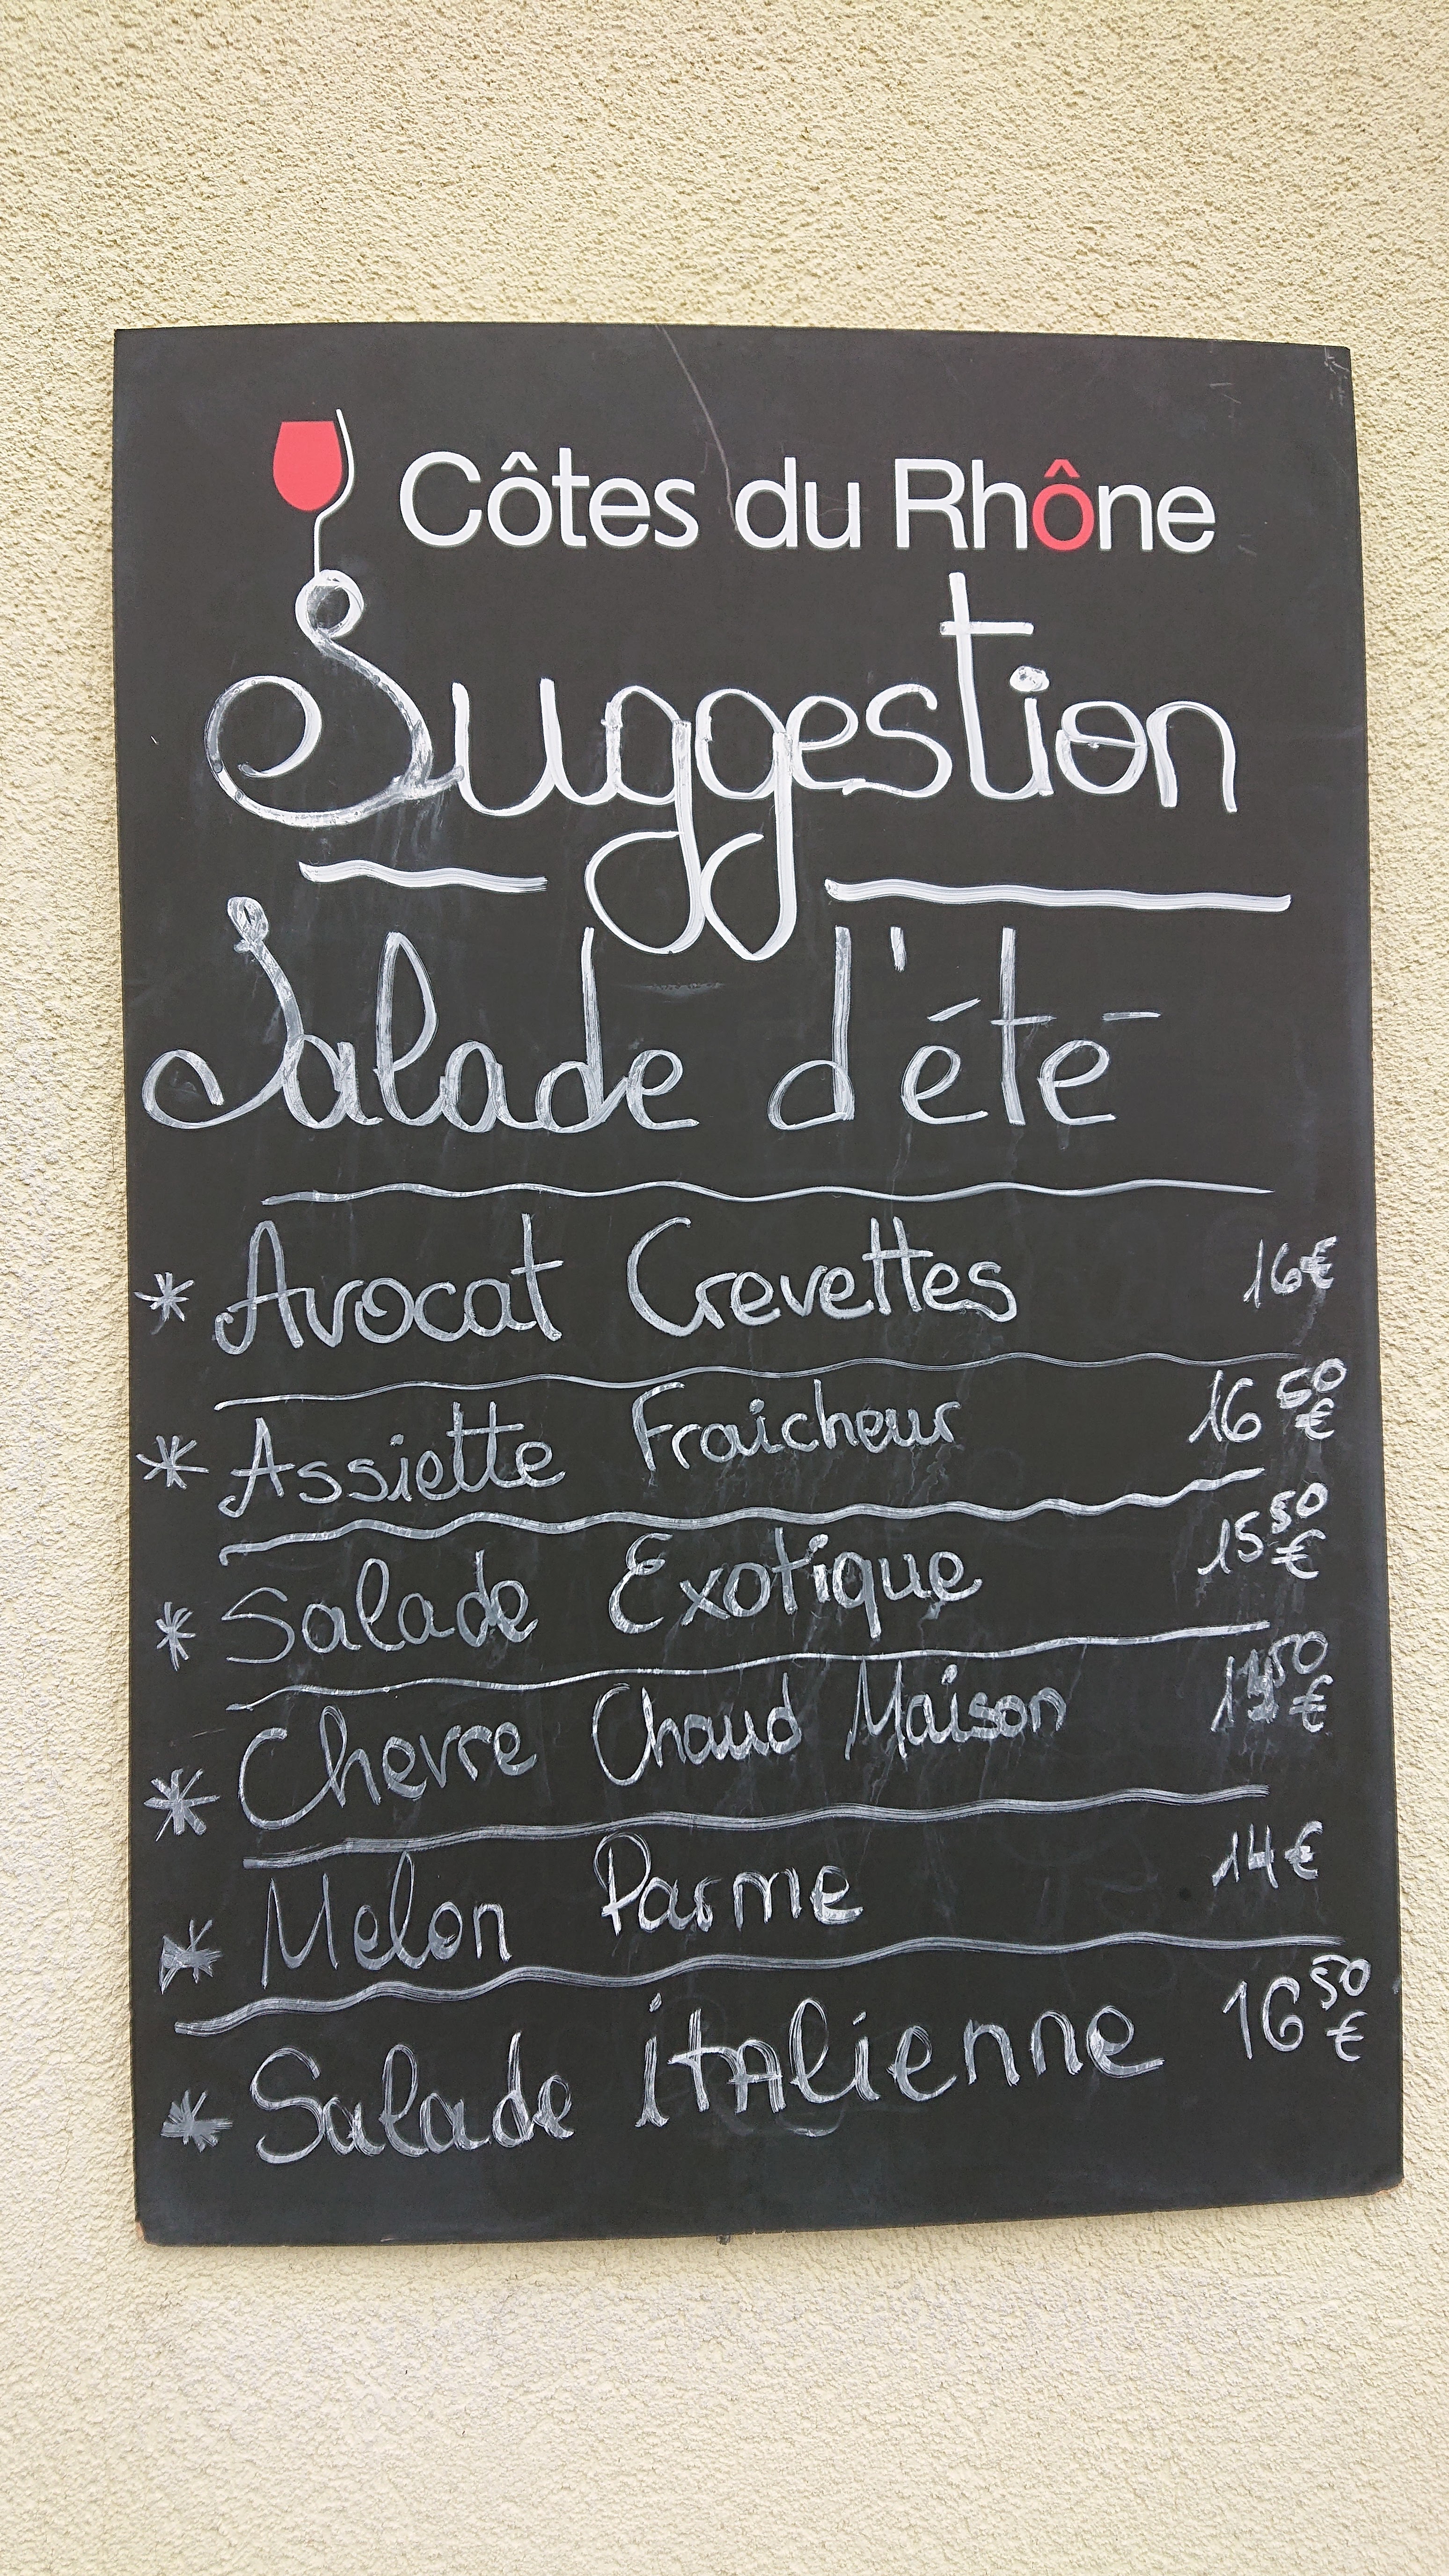 Côtes du Rhône
Suggestion
Salade d'été
* Avocat Crevettes 16€
* Assiette Fraicheur 16 50 €
* Salade Exotique 15 50 €
* Chevre Chaud Maison
* Melon Parme 14€
* Salade itAlienne 16 50 €